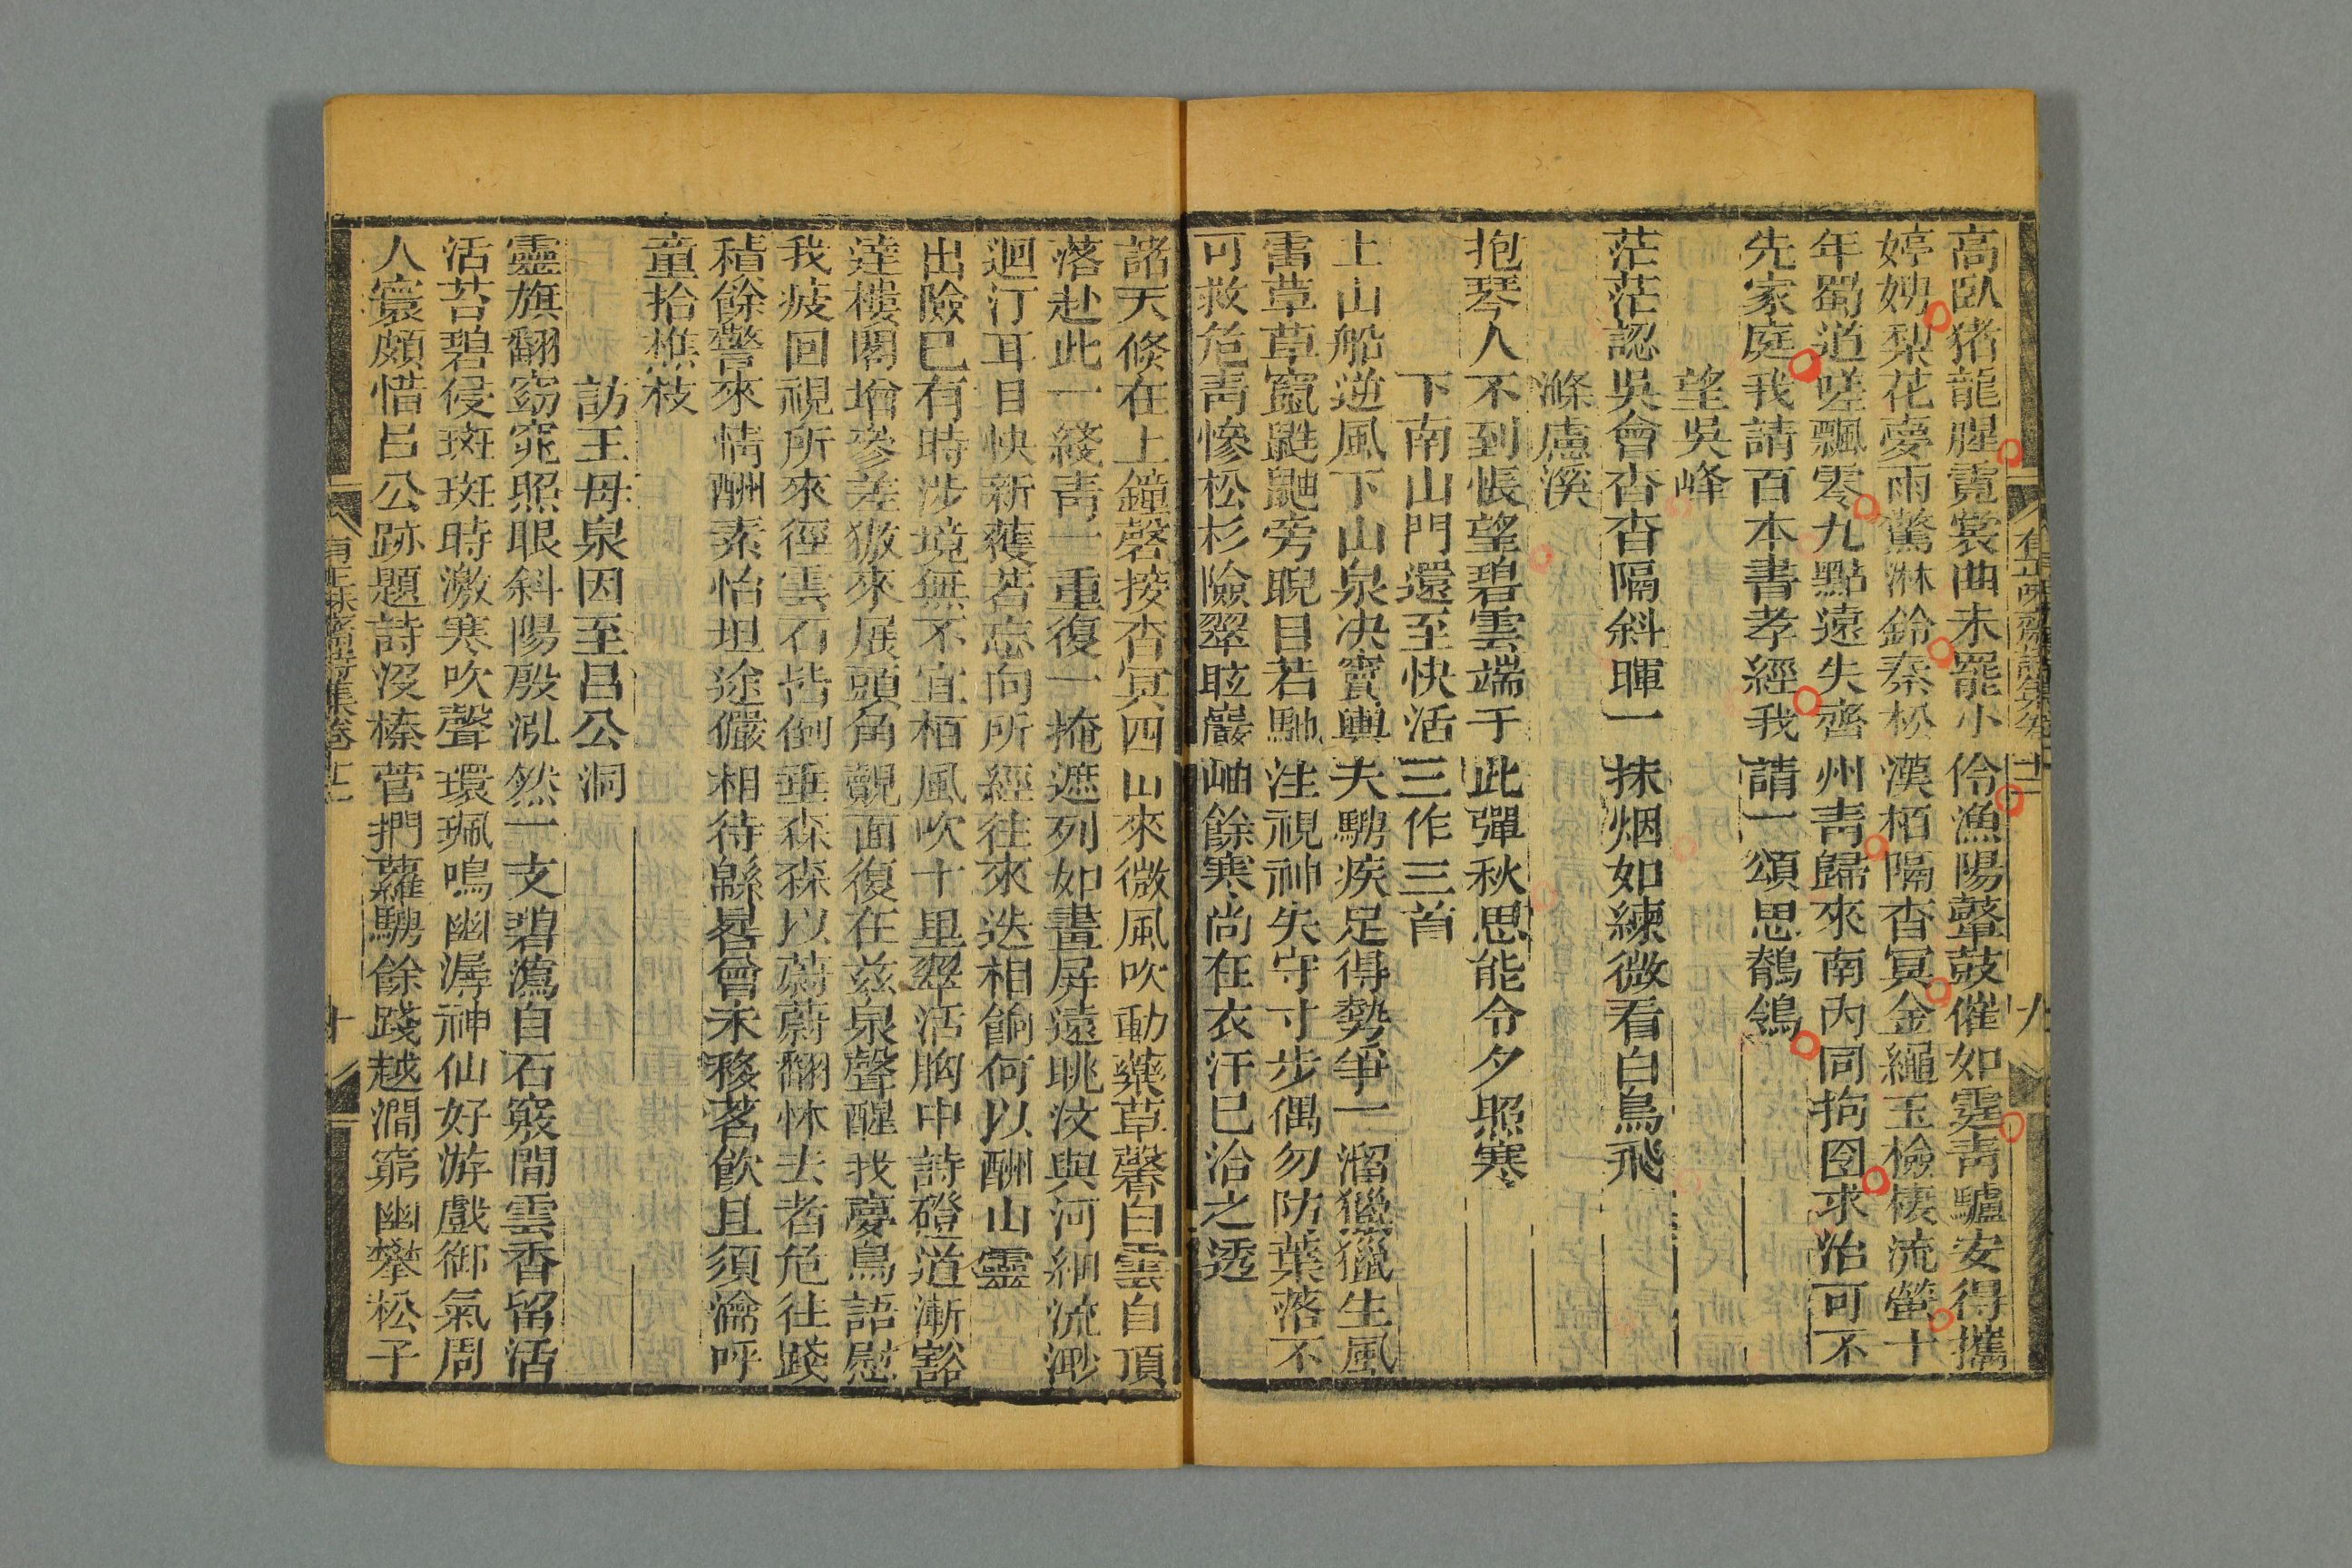 高臥猪龍腥霓裳曲未罷小伶漁陽鼙鼓催如霆靑驢安得攜
娉娉梨花夢雨驚淋鈴秦松漢柏隔杳冥金繩玉檢棲流螢十
年蜀道嗟飄零九點遠失齊州靑歸來南內同拘囹求治可不
先家庭我請百本書孝經我請一頌思鶺鴒
望吳峰
茫茫認吳會杳杳隔斜暉一抹烟如練微看白鳥飛
滌慮溪
抱琴人不到悵望碧雲端于此彈秋思能令夕照寒
下南山門還至快活三作三首
上山船逆風下山泉决竇輿夫騁疾足得勢爭一溜獵獵生風
雷草草竄鼪鼬旁睨目若馳注視神失守寸步偶勿防葉落不
可救危靑慘松杉險翠眩巖岫餘寒尚在衣汗已洽之透
諸天倐在上鐘磬接杳冥四山來微風吹動藥草馨白雲自頂
落赴此一綫靑一重復一掩遮列如畫屏遠眺汶與河細流渺
迴汀耳目快新獲若忘向所經往來迭相餉何以酬山靈
出險已有時涉境無不宜栢風吹十里翠活胸中詩磴道漸豁
達樓閣增參差猨來展頭角覿面復在兹泉聲醒我夢鳥語慰
我疲回視所來徑雲石皆倒垂森森以蔚蔚翻怵去者危往踐
稭餘警來情酬素怡坦途儼相待緜晷曾未移茗飮且須瀹呼
童拾樵枝
訪王母泉因至呂公洞
靈旗翻窈窕照眼斜陽殷泓然一支碧瀉自石竅閒雲香留活
活苔碧侵斑斑時激寒吹聲環珮鳴幽潺神仙好游戲御氣周
人寰頗惜呂公跡題詩沒榛菅捫蘿騁餘踐越澗窮幽攀松子
有正味齋詩集卷十二
十
九